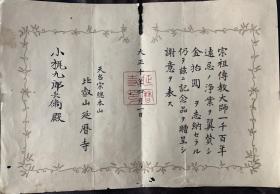 宗祖傳教大師一千百年
遠忌ノ浄業ヲ翼賛シ
金拾圓ヲ志納セラル
仍テ茲ニ記念品ヲ贈呈シ
謝意ヲ表ス
大正
天台宗總本山
比叡山延暦寺
小梶九郎兵衛殿